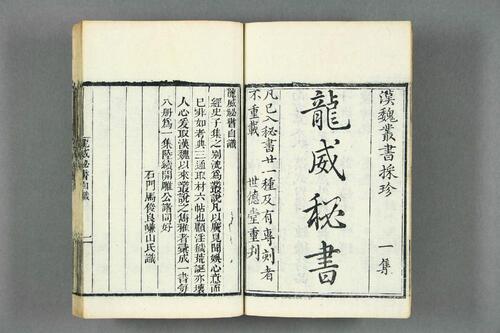 漢魏叢書採珍 一集
龍威秘書
凡已入秘書廿一種及有專刻者
不重載 世德堂重刋
龍威秘書自識
經史子集之別流為叢說凡以廣見聞娛心意而
已非如者典三通取材六帖也顧淫穢荒誕亦壞
人心爰取漢魏以來叢說之雋雅者彙成一書剪
八册為一集陸續開雕公諸同好
石門馬俊良嵰山氏識
龍威秘書自識